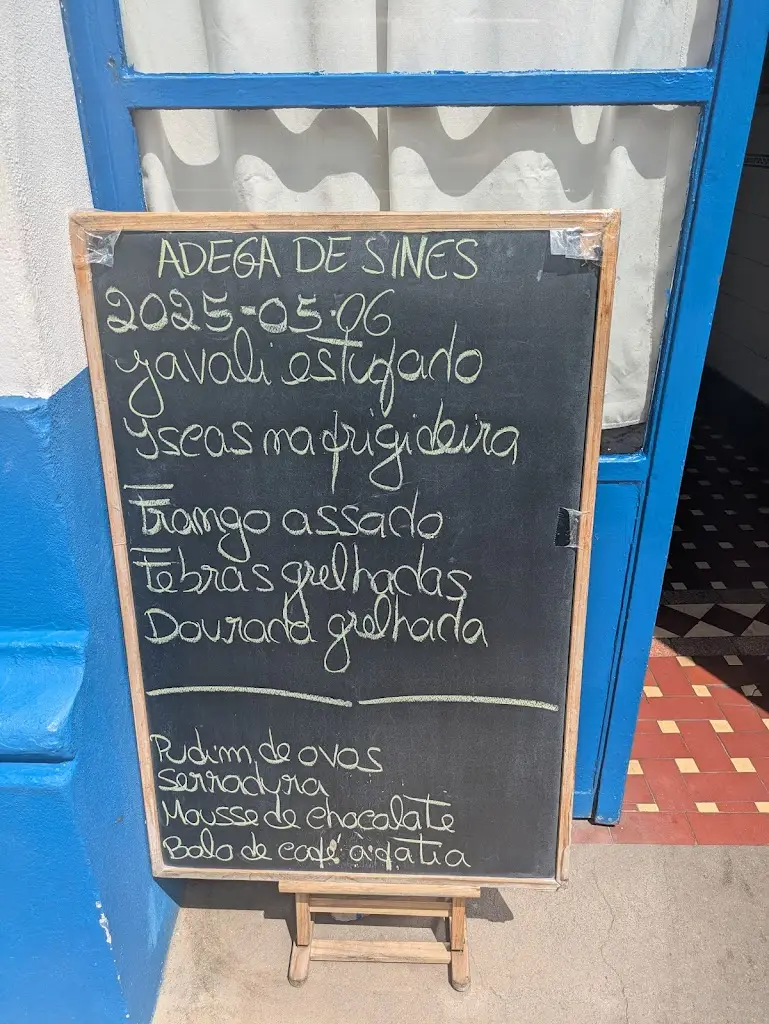 ADEGA DE SINES
2025-05-06
Javali estufado
Iscas na frigideira
Frango assado
Febras grelhadas
Dourada grelhada
Pudim de ovos
serradura
Mousse de chocolate
Bolo de café à fatia